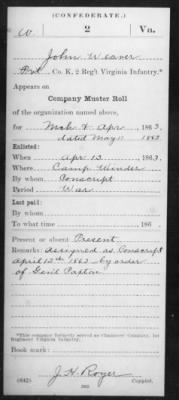 (CONFEDERATE.)
W 2 Va.
John Weaver
Pvt, Co. K, 2 Reg't Virginia Infantry.*
Appears on
Company Muster Roll
of the organization named above,
for Mch & Apr, 1863.
dated May 11 1863
Enlisted:
When Apr 13, 1863.
Where Camp Winder
By whom Conscript
Period War
Last paid:
By whom
To what time , 186 .
Present or absent Present
Remarks: assigned as Conscript
April 13th 1863 by order
of Genl Paxton
*This company formerly served as
Regiment Virginia Infantry.
Book mark:
J. H. Royer
(642) Copyist.